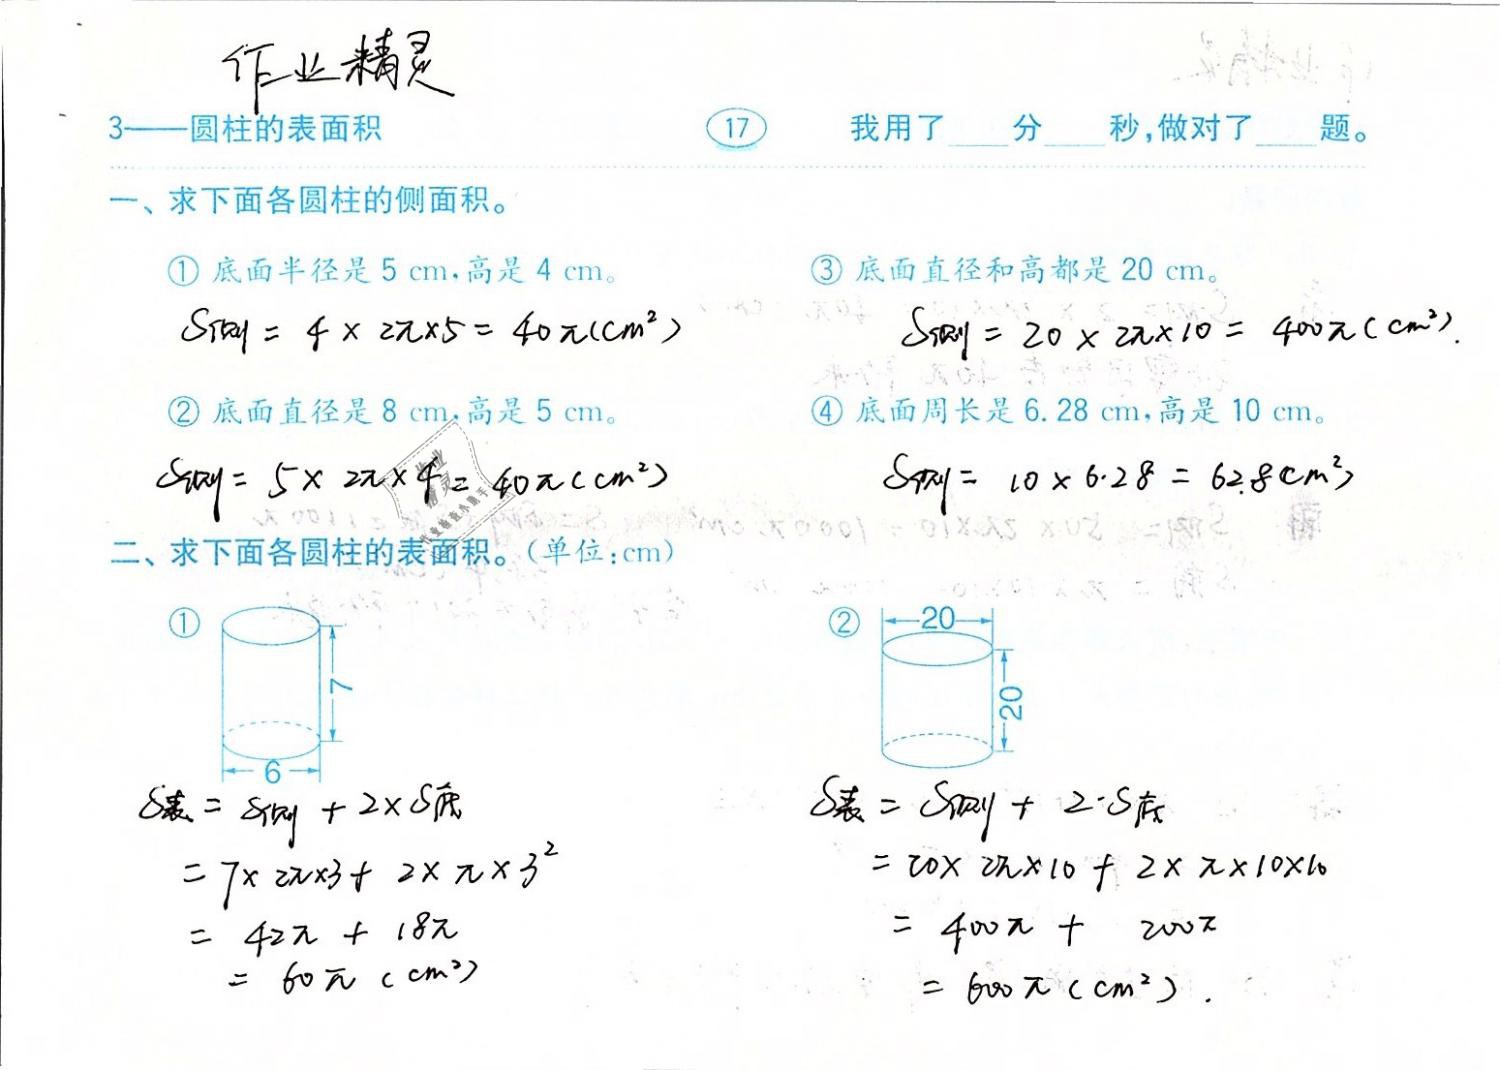 作业精灵
3——圆柱的表面积 17 我用了____分____秒,做对了____题。
一、求下面各圆柱的侧面积。
① 底面半径是 5 cm,高是 4 cm。
S侧 = 4 × 2π×5 = 40π(cm²)
② 底面直径是 8 cm,高是 5 cm。
S侧 = 5 × 2π × 4 = 40π(cm²)
③ 底面直径和高都是 20 cm。
S侧 = 20 × 2π×10 = 400π(cm²).
④ 底面周长是 6.28 cm,高是 10 cm。
S侧 = 10 × 6.28 = 62.8cm²)
二、求下面各圆柱的表面积。(单位:cm)
①
7
6
S表 = S侧 + 2×S底
= 7× 2π×3+ 2×π×3²
= 42π + 18π
= 60π (cm²)
②
20
20
S表 = S侧 + 2·S底
= 20× 2π×10 + 2×π×10×10
= 400π + 200π
= 600π(cm²).